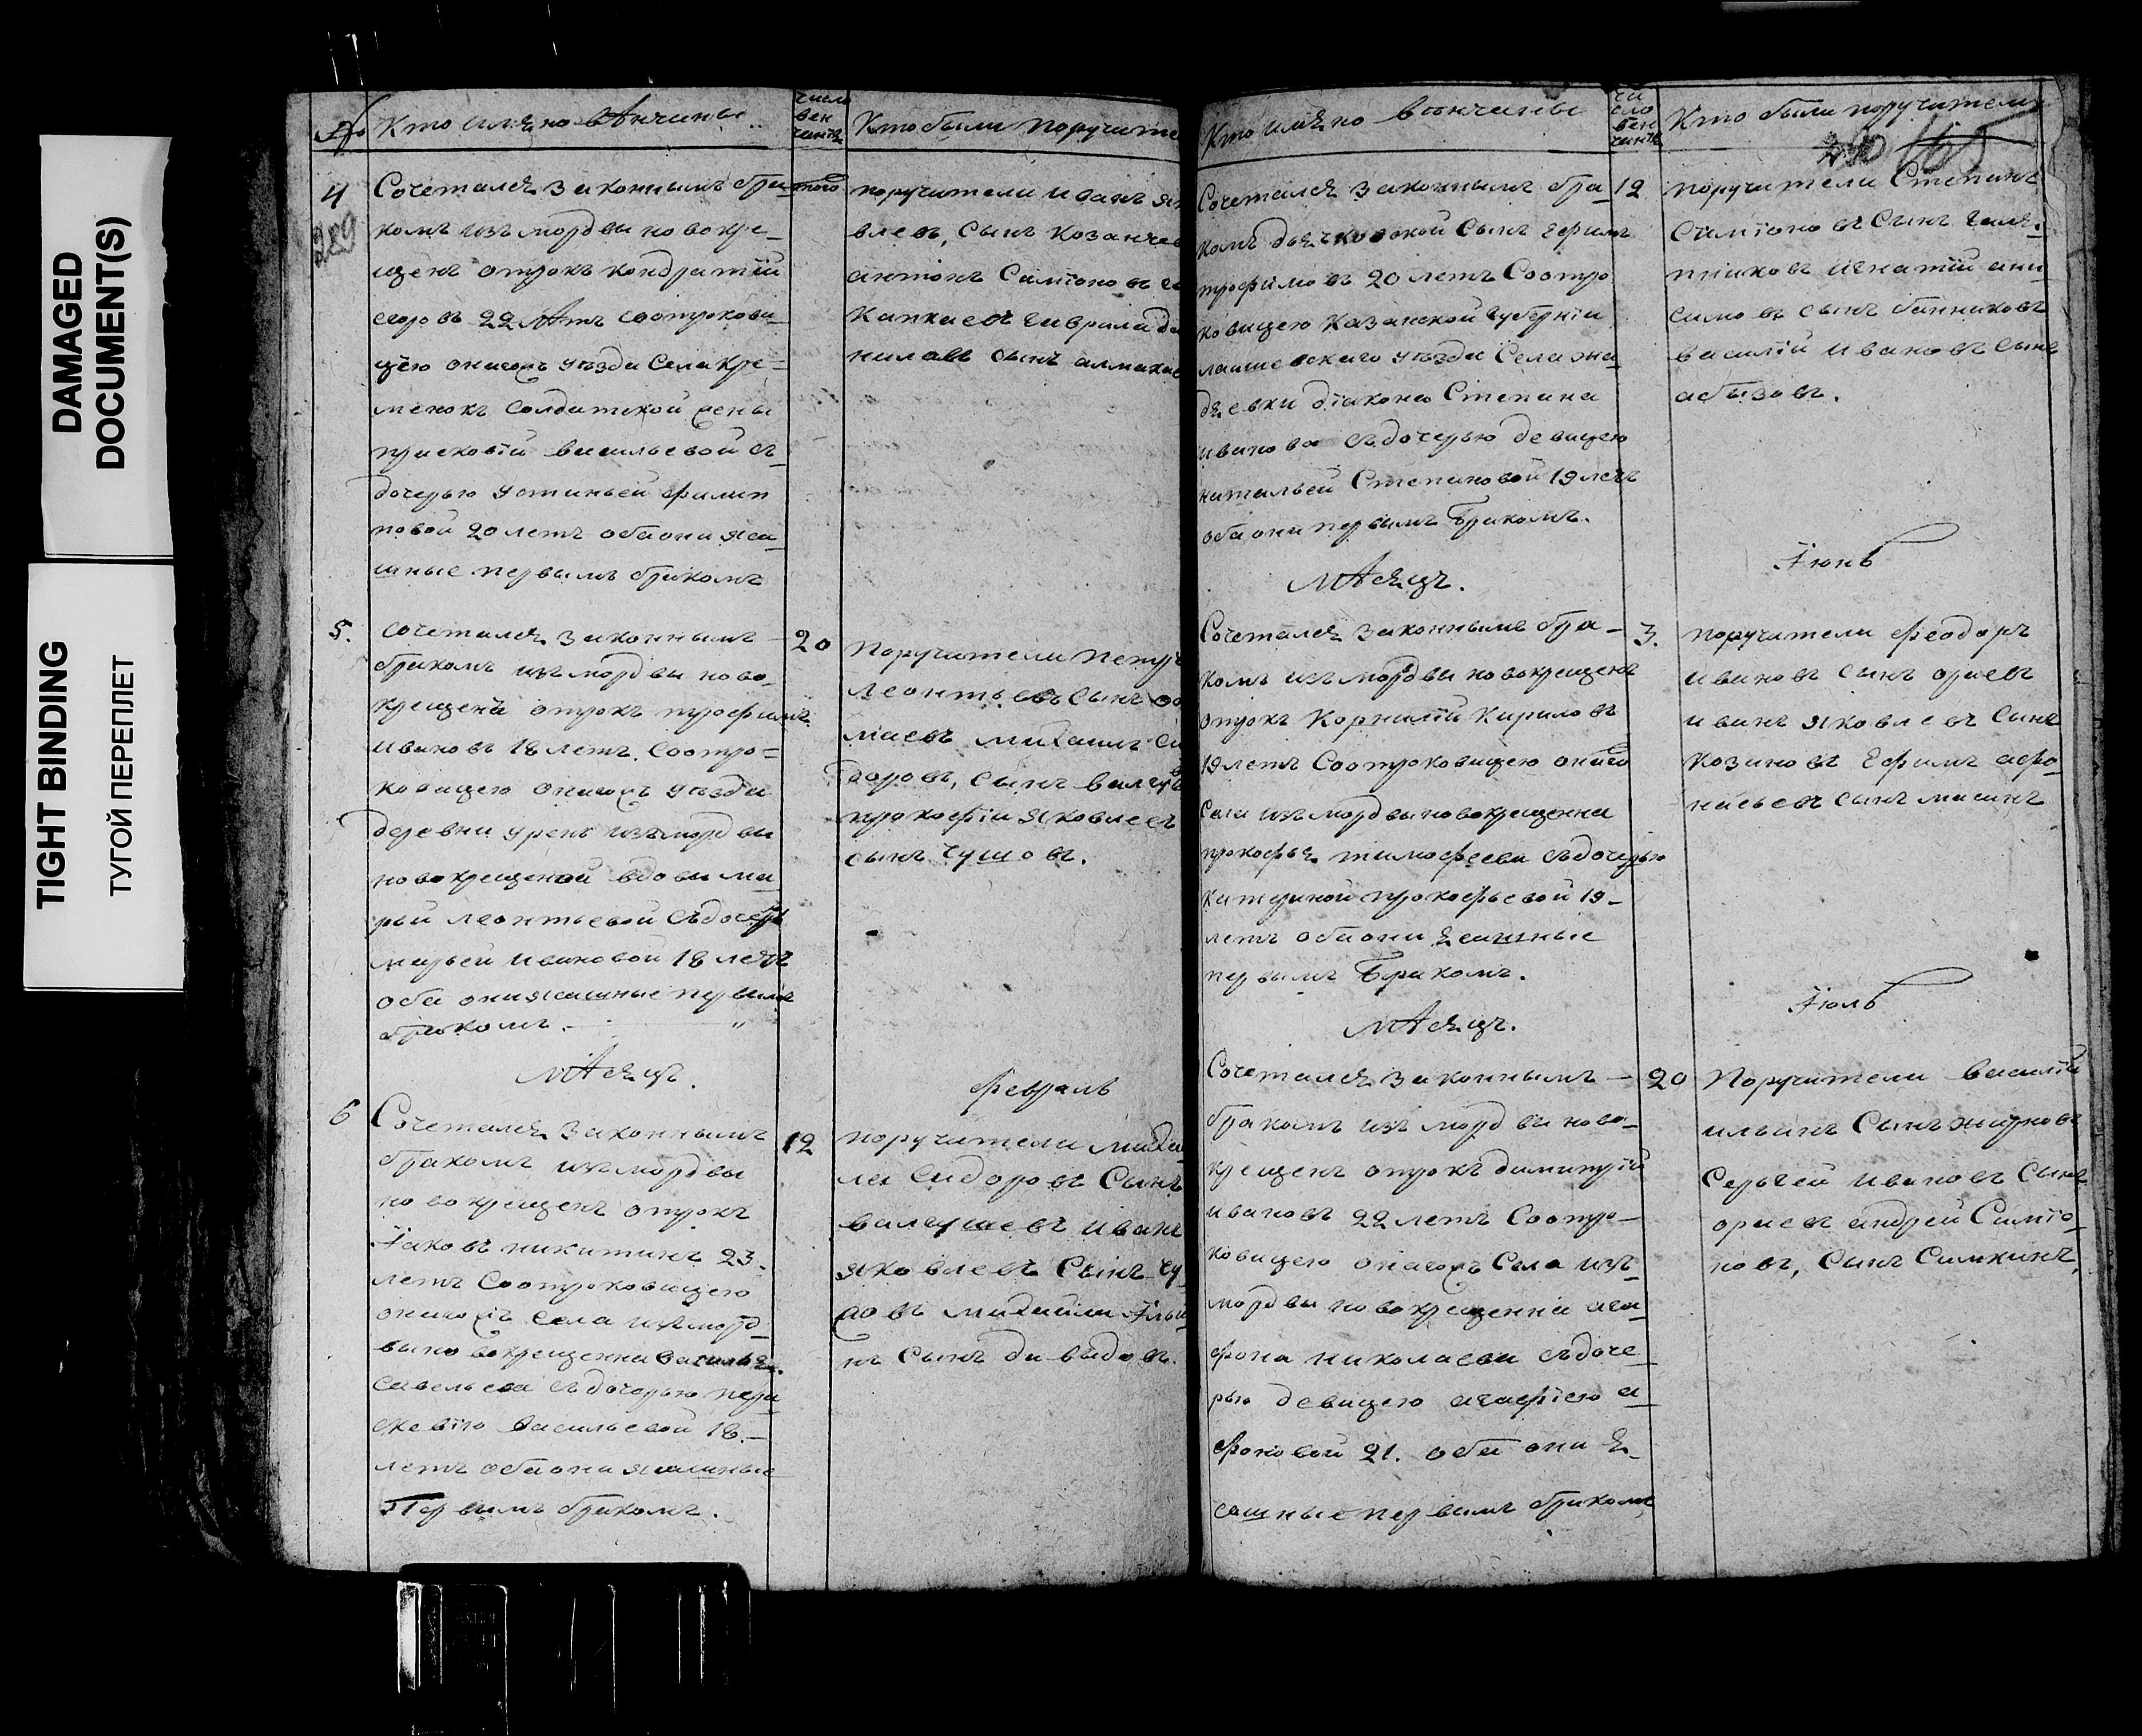 DAMAGED
DOCUMENT(S)
TIGHT BINDING
ТУГОЙ ПЕРЕПЛЕТ
№ Кто имяно вѣнчаны
число вен чанія
Кто были поручите
4
289
Сочетался законнымъ бра-
комъ изъ мордвы новокре-
щенъ отрокъ кондратїй
22 лѣтъ соотрокови-
цею онагожъ уѣзда Села Кре-
менокъ Солдатской жены
прасковїи васильевой съ
дочерью устиньей филип
повой 20 летъ оба они яса-
шные первымъ бракомъ
того
поручители иванъ як
влевъ, сынъ козанче
антонъ Симїоновъ с
Капкаевъ гаврила да
ниловъ сынъ алмакае
5.
сочетался законнымъ
бракомъ изъ мордвы ново-
крещенъ отрокъ трофимъ
ивановъ 18 летъ. Соотро=
ковицею онагожъ уѣзда
деревни урень изъ мордвы
новокрещеной вдовы ма-
рьи леонтьевой съ дочерью
марьей ивановой 18 летъ
оба они ясашные первымъ
бракомъ.
20
Поручители петръ
леонтьевъ сынъ
маевъ михаилъ си
доровъ, сынъ
прокофїи яковлевъ
сынъ чушовъ.
Мѣсяцъ.
февраль
6
Сочетался законнымъ
бракомъ изъ мордвы
новокрещенъ отрокъ
Їаковъ никитинъ 23.
летъ Соотроковицею
онагожъ села изъ морд-
вы новокрещенна василья
савельева съ дочерью пара
скевїю васильевой 18.-
летъ оба они ясашные
Первымъ бракомъ.
12
поручители михаи-
ла Сидоровъ Сынъ
валгушевъ иванъ
яковлевъ Сынъ чу-
довъ михайла Їльи-
нъ Сынъ давыдовъ.
Кто имяно вѣнчаны
чи сло вен чанія
Кто были поручители
290
165
Сочетался законнымъ бра-
комъ дьячковской Сынъ Ефимъ
трофимовъ 20 летъ Соотро
ковицею Казанской губернїи
лаишевскаго уѣзда Села
дїакона Степана
иванова съ дочерью девицею
натальей Степановой 19 летъ
оба они первымъ Бракомъ.
12
поручители Степанъ
Симїоновъ Сынъ
игнатїй ани
симовъ сынъ банниковъ
василїй ивановъ сынъ
абызовъ.
Мѣсяцъ.
Їюнь
Сочетался законнымъ бра-
комъ изъ мордвы новокрещенъ
отрокъ Корнилїй Кириловъ
19 летъ Соотроковицею онаго
Села изъ мордвы новокрещенна
прокофья тимофеева съ дочерью
катериной прокофьевой 19-
летъ оба они ясашные
первымъ Бракомъ.
3.
поручители феодоръ
ивановъ сынъ ораевъ
иванъ яковлевъ Сынъ
Козиновъ Ефимъ афо-
насьевъ сынъ масинъ
Мѣсяцъ.
Їюль
Сочетался законнымъ -
бракомъ изъ мордвы ново-
крещенъ отрокъ димитрїй
ивановъ 22 летъ Соотро-
ковицею онагожъ Села изъ-
мордвы новокрещенна ага-
фона николаева съ доче-
рью девицею агафїею а-
фоновой 21. оба они я-
сашные первымъ бракомъ,
20
Поручители василїй
ильинъ Сынъ жирновъ
Сергей ивановъ Сынъ
ораевъ андрей Симїо-
новъ, Сынъ Симкинъ,